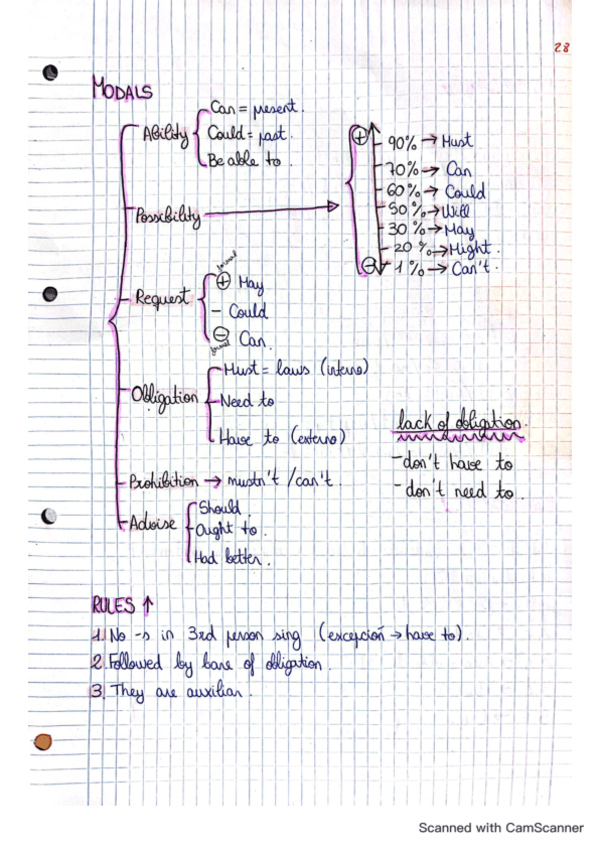 28
MODALS
Ability
Can = present.
Could = past.
Be able to.
Possibility →
⊕
90% → Must
70% → Can
60% → Could
50% → Will
30% → May
20% → Might.
⊖ 1% → Can't.
Request
formal
⊕ May
- Could
⊖ Can.
formal
Obligation
Must = laws (interno)
Need to
Have to (externo)
lack of obligation.
- don't have to
- don't need to.
Prohibition → mustn't / can't.
Advise
Should.
Ought to.
Had better.
RULES ↑
1. No -s in 3rd person sing (excepción → have to).
2. Followed by bare of obligation.
3. They are auxiliar.
Scanned with CamScanner